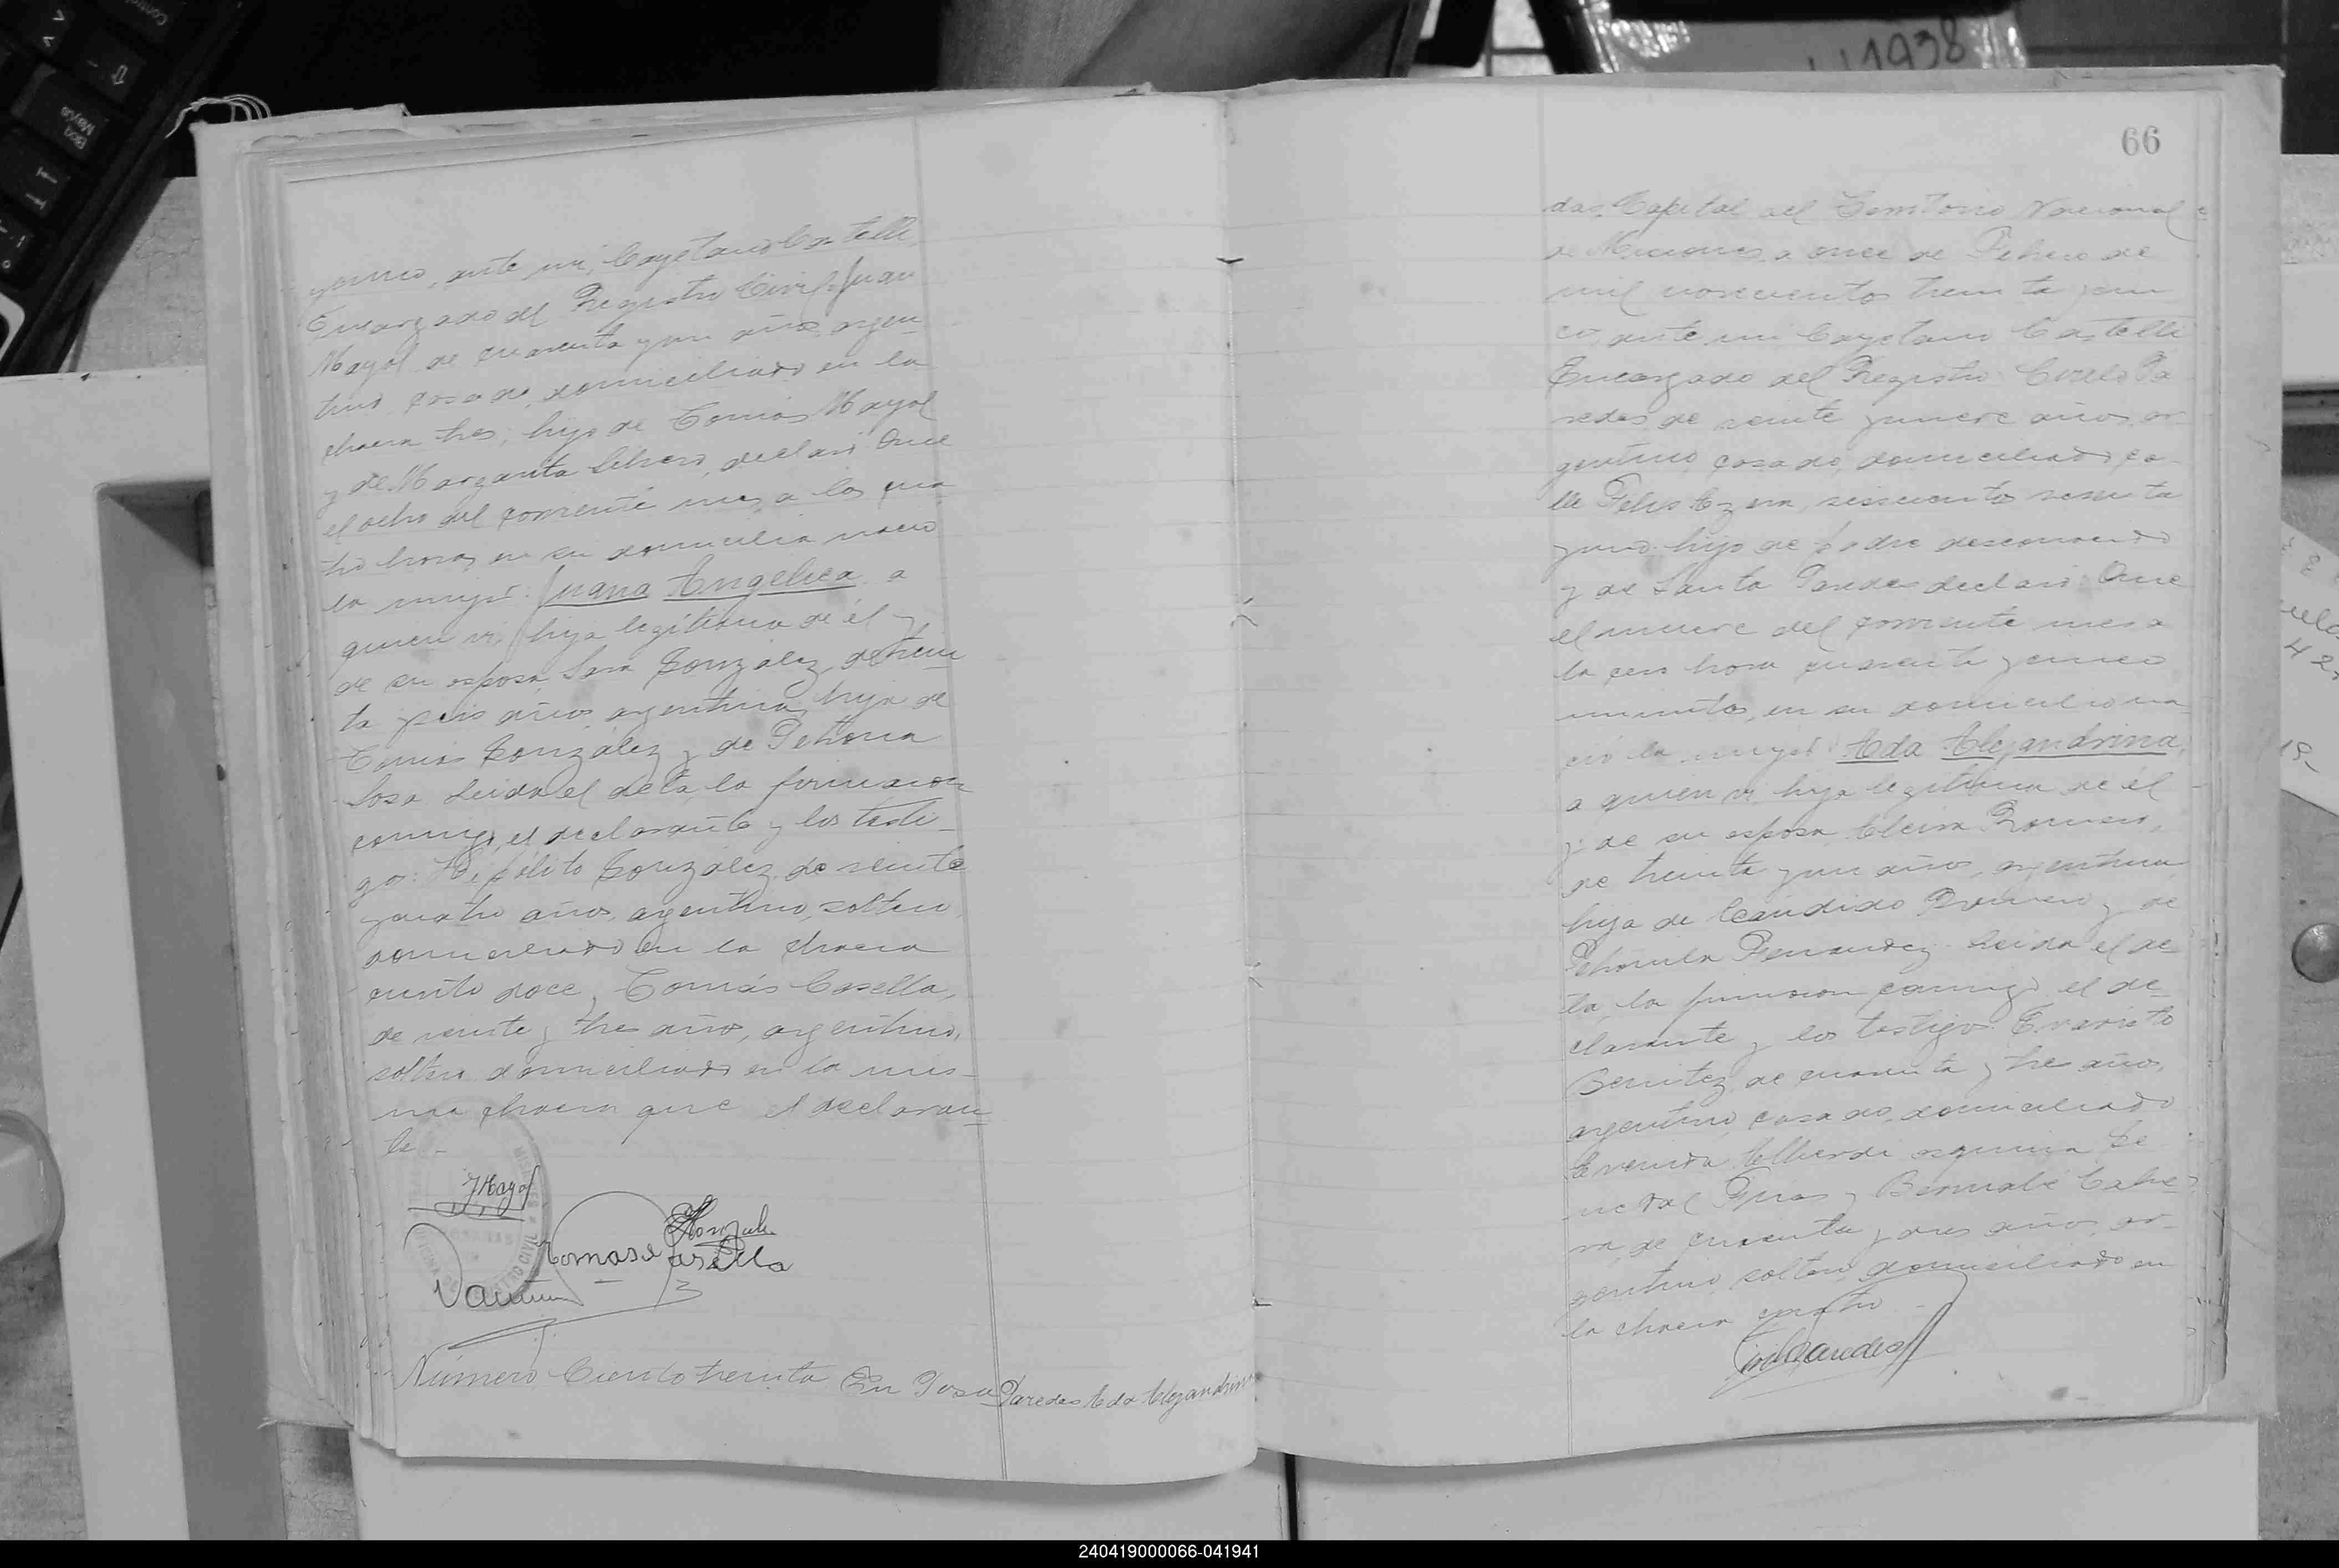 y cinco, ante mi, Cayetano Castelli
Encargado del Registro Civil, Juan
Mayol de cuarenta y un años, argen-
tino casado, domiciliado en la
chacra tres, hijo de Tomás Mayol
y de Margarita declaró: Que
el ocho del corriente mes, a las cua-
tro horas, en su domicilio nació
la mujer: Juana Angélica, a
quien vi, hija legítima de él y
de su esposa Sara González, de trein-
ta y seis años, argentina, hija de
Tomás González y de Petrona
Sosa. Leida el acta, la firmaron
conmigo, el declarante y los testi-
gos: Hipólito González, de veinte
y cuatro años, argentino, soltero,
domiciliado en la chacra
ciento doce y Tomás Casella,
de veinte y tres años, argentino,
soltero domiciliado en la mis-
ma chacra que el declaran-
te.-
JMayol
HGonzalez
Tomas Casella
Número Ciento treinta En Posa
Paredes Ada Alejandrina
66
das, Capital del Territorio Nacional
de Misiones, a once de Febrero de
mil novecientos treinta y cin-
co, ante mi Cayetano Castelli
Encargado del Registro Civil Pa-
redes de veinte y nueve años, ar-
gentino, casado, domiciliado ca-
lle Felix Azara, seiscientos sesenta
y uno, hijo de padre desconocido
y de Santa Paredes declaró: Que
el nueve del corriente mes a
la hora cuarenta y cinco
minutos, en su domicilio na-
ció la mujer: Ada Alejandrina,
a quien vi, hija legítima de él
y de su esposa Alcira Romero,
de treinta y un años, argentina,
hija de Cándido Romero y de
Petronila Fernandez. Leida el ac-
ta, la firmaron conmigo, el de-
clarante y los testigos: Evaristo
Benitez, de cuarenta y tres años,
argentino, casado, domiciliado
Avenida Alberdi esquina Ge-
neral y Bernabé Cabre-
ra, de cincuenta y dos años, ar-
gentino, soltero, domiciliado en
la chacra cuatro.-
Paredes
240419000066-041941